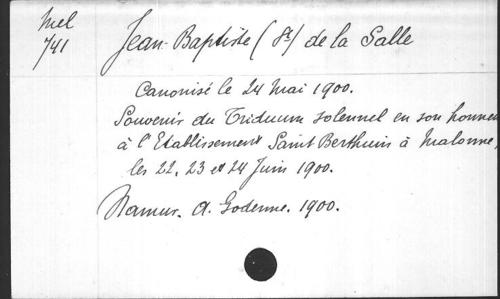 Mel
741
Jean-Baptiste (St) de la Salle
Canonisé le 24 Mai 1900.
Souvenir du Triduum solennel en son honneur
à l'Etablissement Saint Berthuin à Malonne,
les 22, 23 et 24 Juin 1900.
Namur. A. Godenne. 1900.